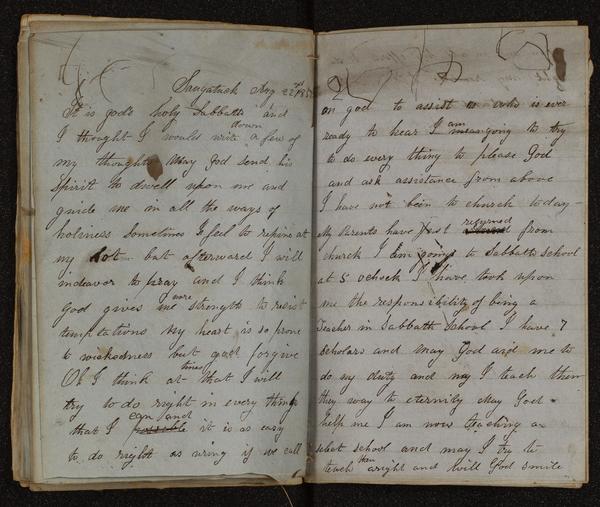 Saugatuck Aug 22nd 185
It is god's holy Sabbath and
I thought I would write down a few of
my thoughts May God send his
Spirit to dwell upon me and
guide me in all the ways of
holiness Sometimes I feel to repine at
my lot but afterward I will
indeavor to pray and I think
God gives me more strength to resist
temptations My heart is so prone
to wickedness but god forgive
Oh I think at times that I will
try to do right in every thing
that I can and it is as easy
to do right as wring if we call
2
on god to assist us who is ever
ready to hear I am gong to try
to do every thing to please God
and ask assistance from above
I have not been to church to day -
My Parents have just returned from
church I am going to Sabbath School
at 5 oclock I have took upon
me the responsibility of being a
Teacher in Sabbath School I have 7
Scholars and may God aid me to
do my duty and may I teach them
the way to eternity May God
help me I am now teaching a
select school and may I try to
teach them aright and will God smile